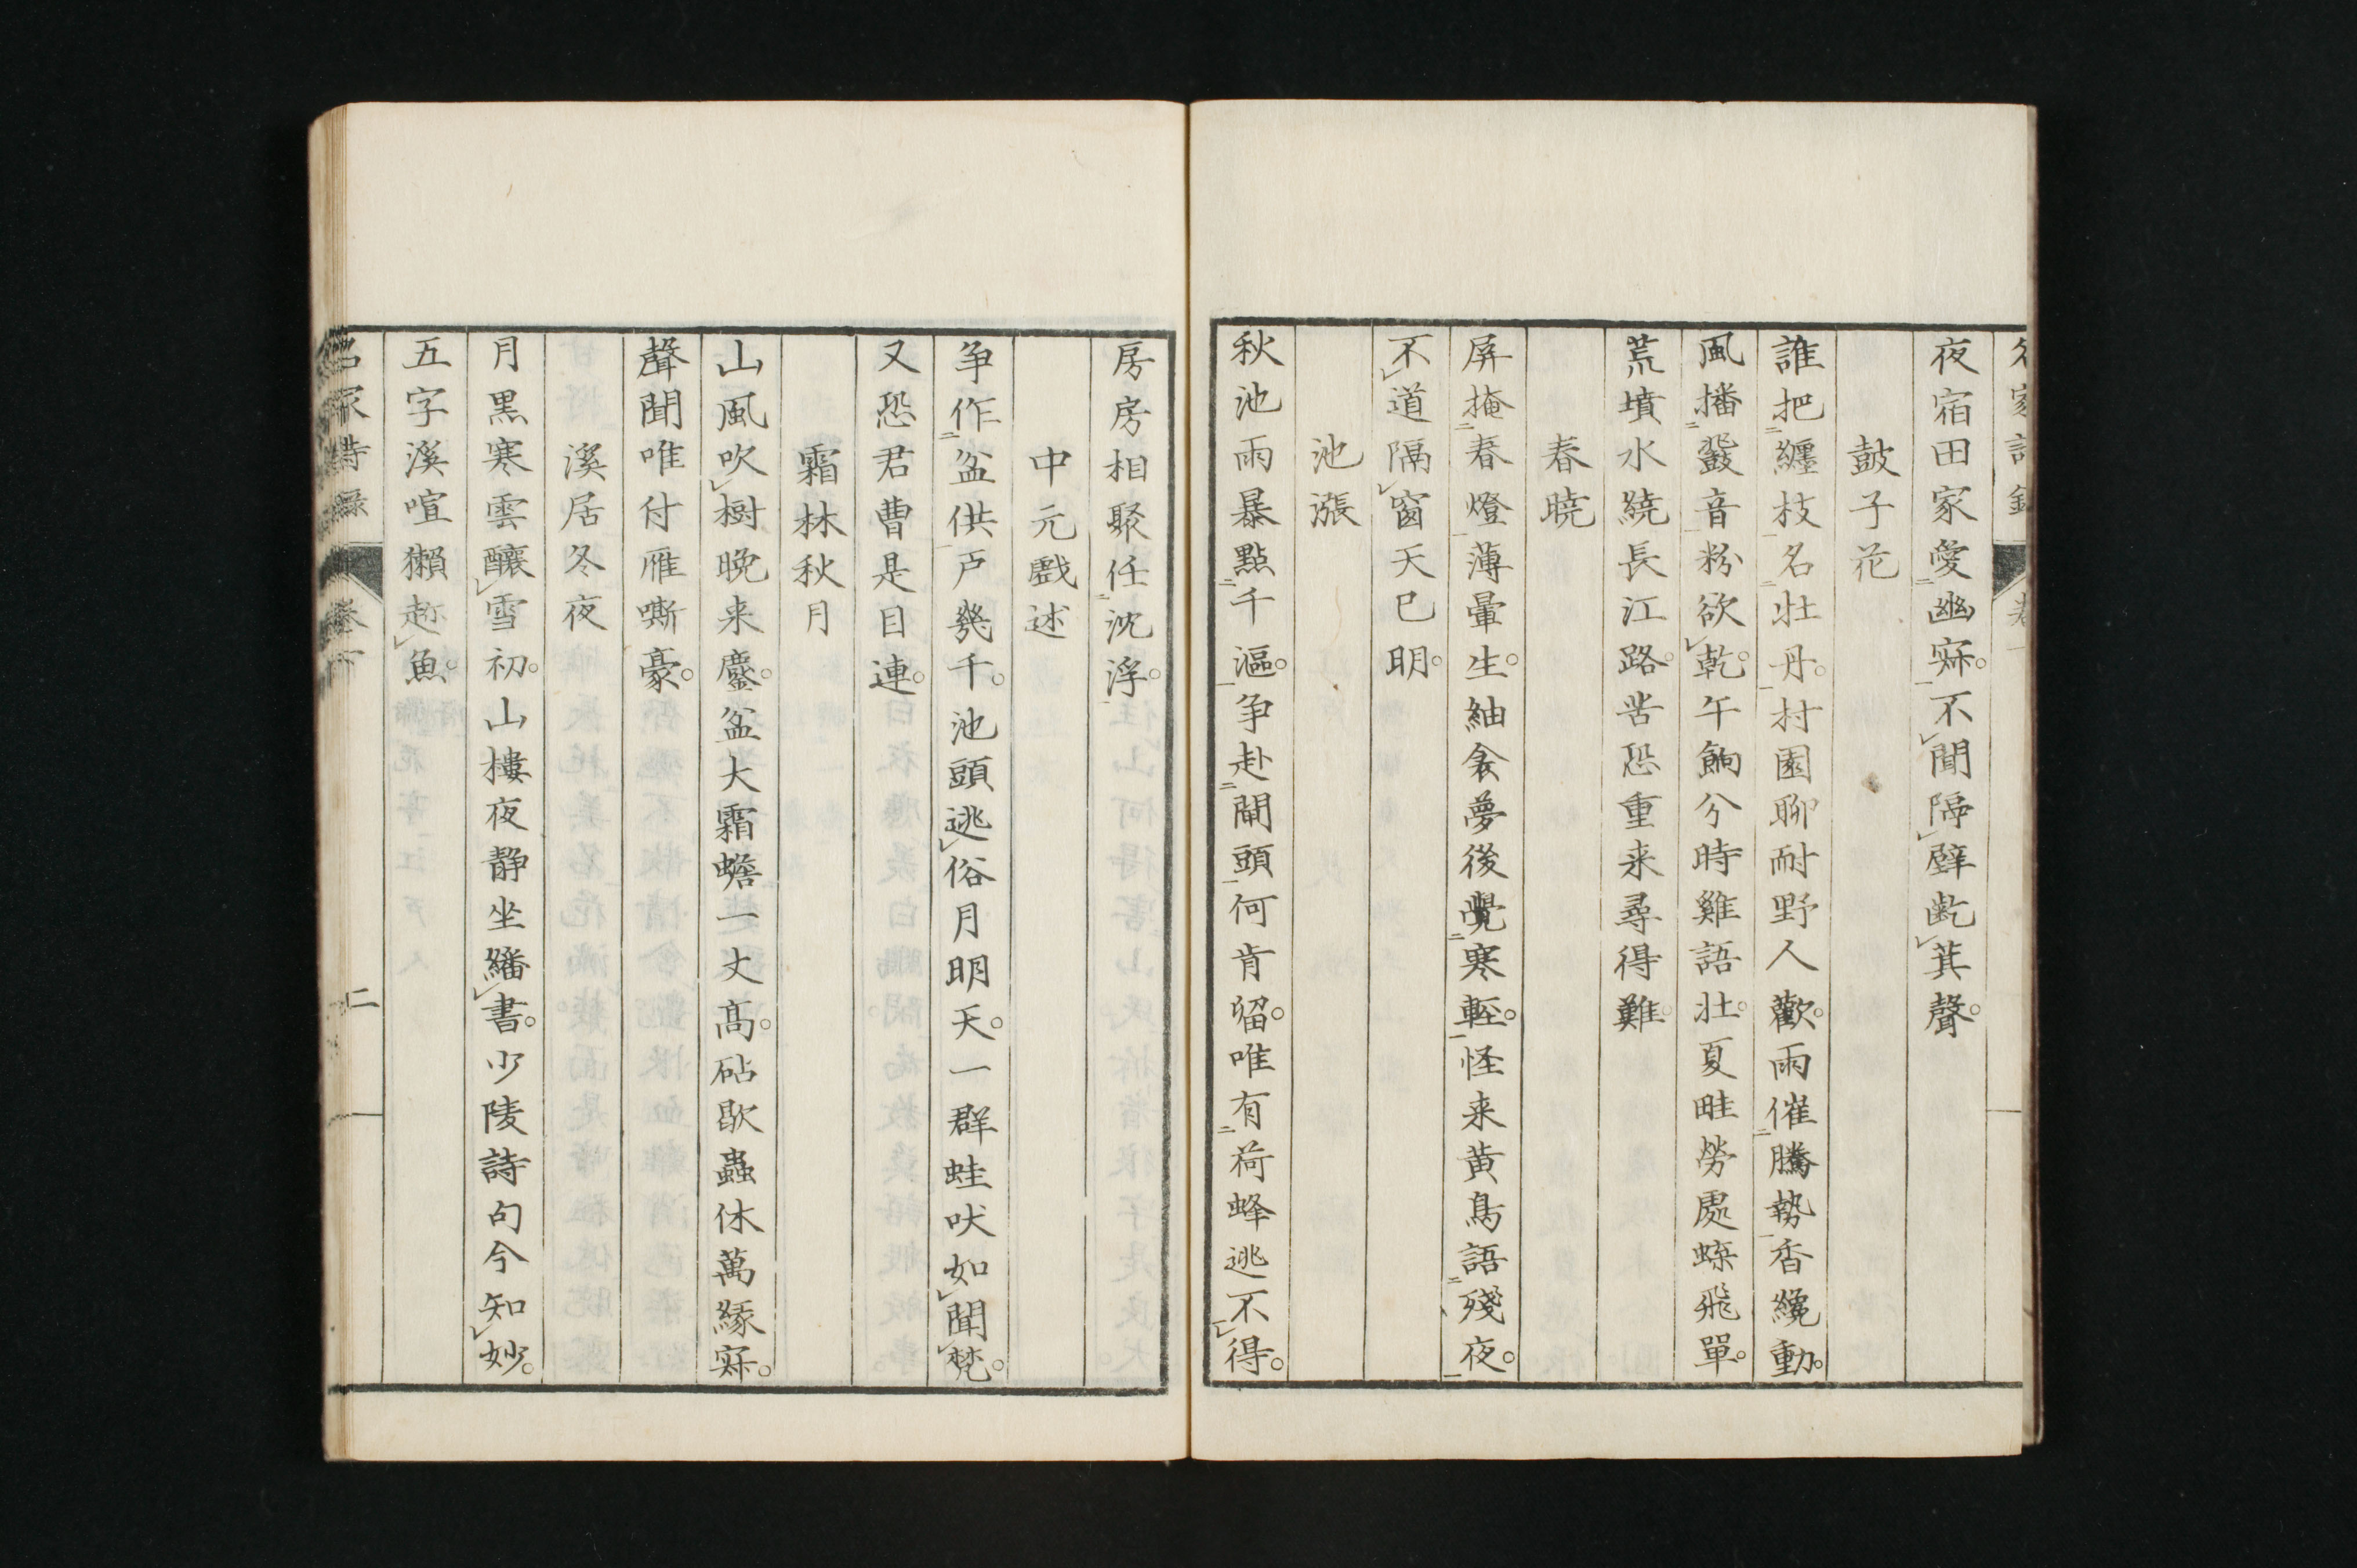 夜宿田家愛幽寂。不聞隔壁齕萁聲。
鼓子花
誰把纏枝名牡丹。村園聊耐野人歡。雨催騰勢香纔動。
風播鼗音粉欲乾。午餉分時雞語壯。夏畦勞處蝶飛單。
荒墳水繞長江路。苦恐重来尋得難。
春曉
屏掩春燈薄暈生。紬衾夢後覺寒輕。怪来黄鳥語殘夜。
不道隔窗天已明。
池漲
秋池雨暴點千漚。争赴閘頭何肯留。唯有荷蜂逃不得。
房房相聚任沈浮。
中元戲述
争作盆供戸幾千。池頭逃俗月明天。一群蛙吠如聞梵。
又恐君曹是目連。
霜林秋月
山風吹樹晚来鏖。盆大霜蟾一丈髙。砧歇蟲休萬緣寂。
聲聞唯付雁嘶豪。
溪居冬夜
月黒寒雲釀雪初。山樓夜静坐繙書。少陵詩句今知妙。
五字溪喧獺趂魚。
名家詩録 卷一 二